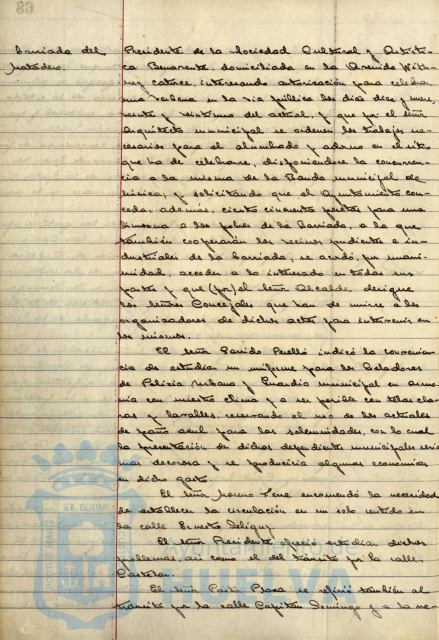 83
Barriada del
Matadero.
Presidente de la Sociedad Cultural y Artísti-
ca Benavente, domiciliada en la Avenida Witt-
ney catorce, interesando autorización para celebrar
una verbena en la vía pública los días diez y nueve,
veinte y veintiuno del actual, y que por el Señor
Arquitecto municipal se ordenen los trabajos ne-
cesarios para el alumbrado y adorno en el sitio
que ha de celebrarse, disponiéndose la concurren-
cia a la misma de la Banda municipal de
Música, y solicitando que el Ayuntamiento con-
ceda, además, ciento cincuenta pesetas para una
limosna a los pobres de la Barriada, a la que
también cooperarán los vecinos pudientes e in-
dustriales de la barriada, se acordó, por unani-
midad, acceder a lo interesado en todas sus
partes y que (por) el Señor Alcalde designe
los Señores Concejales que han de unirse a los
organizadores de dichos actos para intervenir en
los mismos.
El Señor Garrido Perelló indicó la convenien-
cia de estudiar un uniforme para los Celadores
de Policía Urbana y Guardia municipal en armo-
nía con nuestro clima y a ser posible con telas cla-
ras y lavables, reservando el uso de los actuales
de paño azul para las solemnidades, con lo cual
la presentación de dichos dependientes municipales sería
mas decorosa y se produciría algunas economías
en dicho gasto.
El Señor encomendó la necesidad
de establecer la circulación en un solo sentido en
la calle Ernesto Deligny.
El Señor Presidente ofreció estudiar dichos
problemas, así como el del tránsito por la calle
Castelar.
El Señor Plaza se refirió también al
tránsito por la calle Capitán Domingo y a la ne-
HUELVA